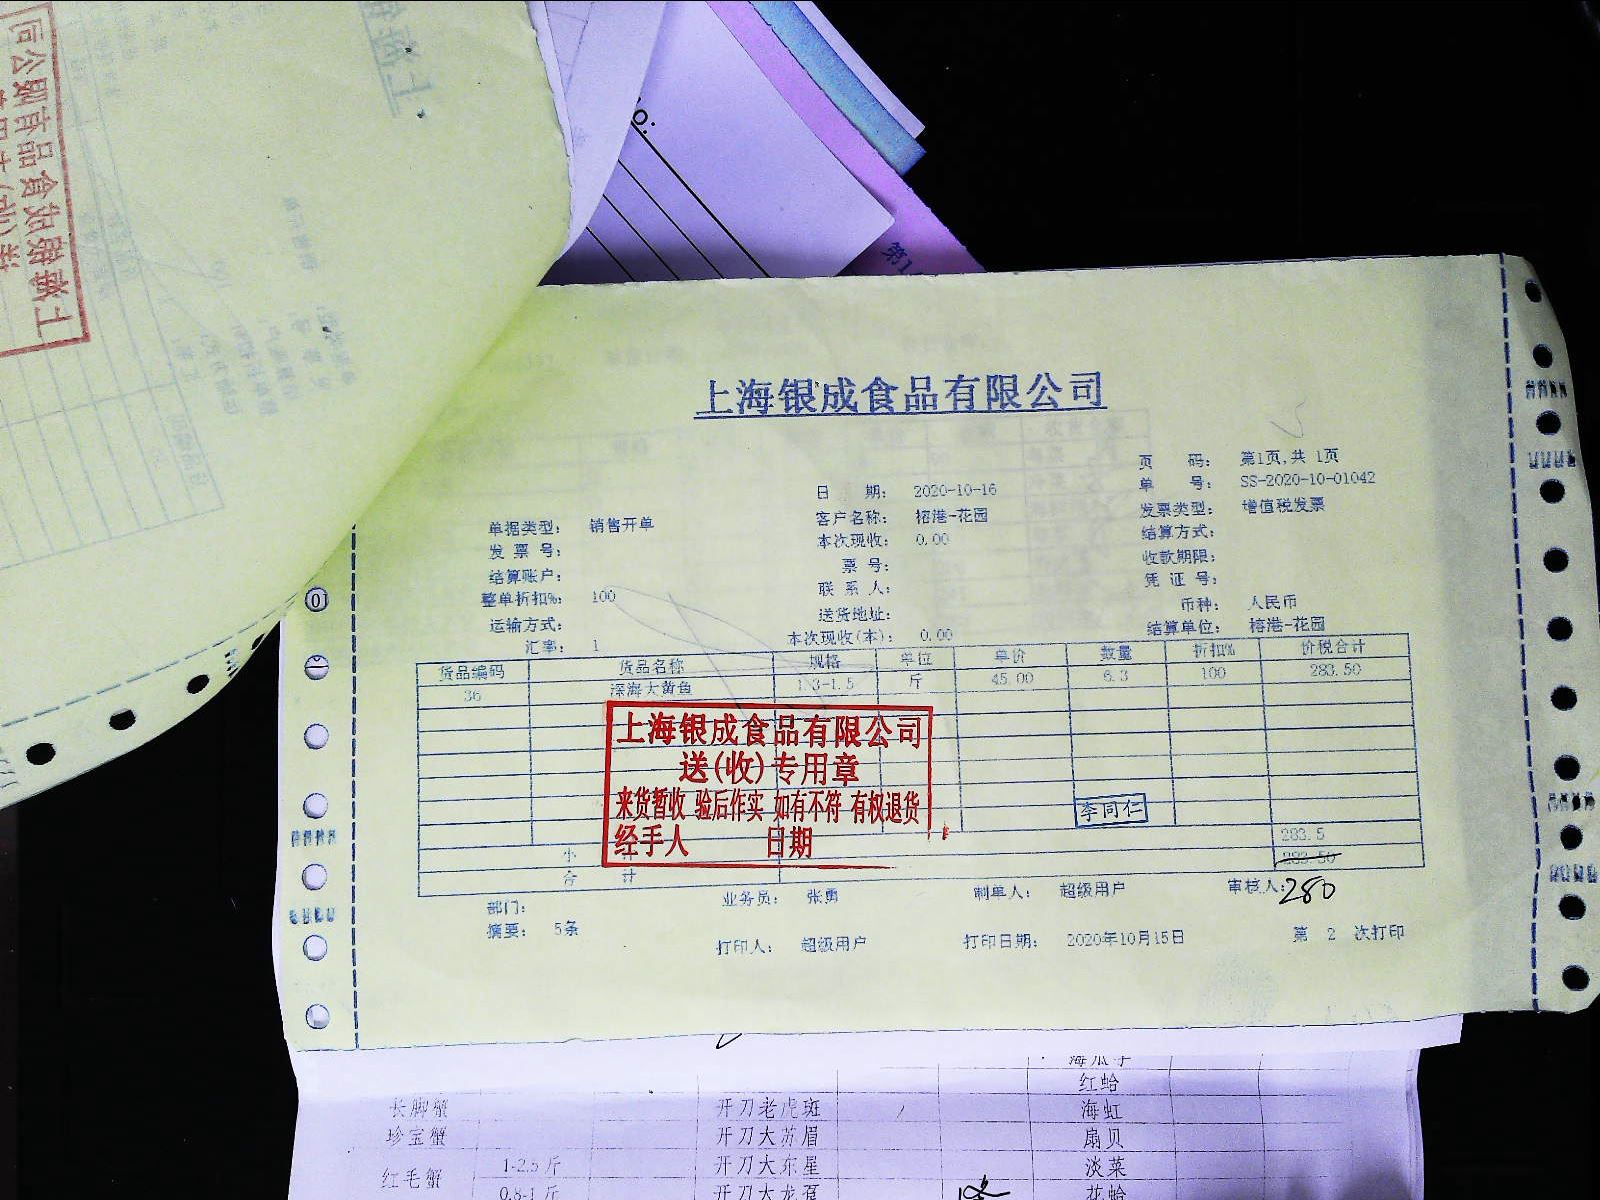 上海银成食品有限公司
页 码： 第1页,共 1页
日 期： 2020-10-16
单 号： SS-2020-10-01042
单据类型： 销售开单
客户名称： 榕港-花园
发票类型： 增值税发票
发 票 号：
本次现收： 0.00
结算方式：
结算账户：
票 号：
收款期限：
整单折扣%： 100
联 系 人：
凭 证 号：
运输方式：
送货地址：
币种： 人民币
汇率： 1
本次现收(本)： 0.00
结算单位： 榕港-花园
货品编码 货品名称 规格 单位 单价 数量 折扣% 价税合计
36 深海大黄鱼 1.3-1.5 斤 45.00 6.3 100 283.50
上海银成食品有限公司
送(收)专用章
来货暂收 验后作实 如有不符 有权退货
经手人 日期
李同仁
小 计 283.5
合 计 283.50
280
部门： 业务员： 张勇 制单人： 超级用户 审核人：
摘要： 5条 打印人： 超级用户 打印日期： 2020年10月15日 第 2 次打印
海瓜子
红蛤
长脚蟹 开刀老虎斑 海虹
珍宝蟹 开刀大苏眉 扇贝
红毛蟹 1-2.5 斤 开刀大东星 淡菜
0.8-1 斤 开刀大龙趸 花蛤